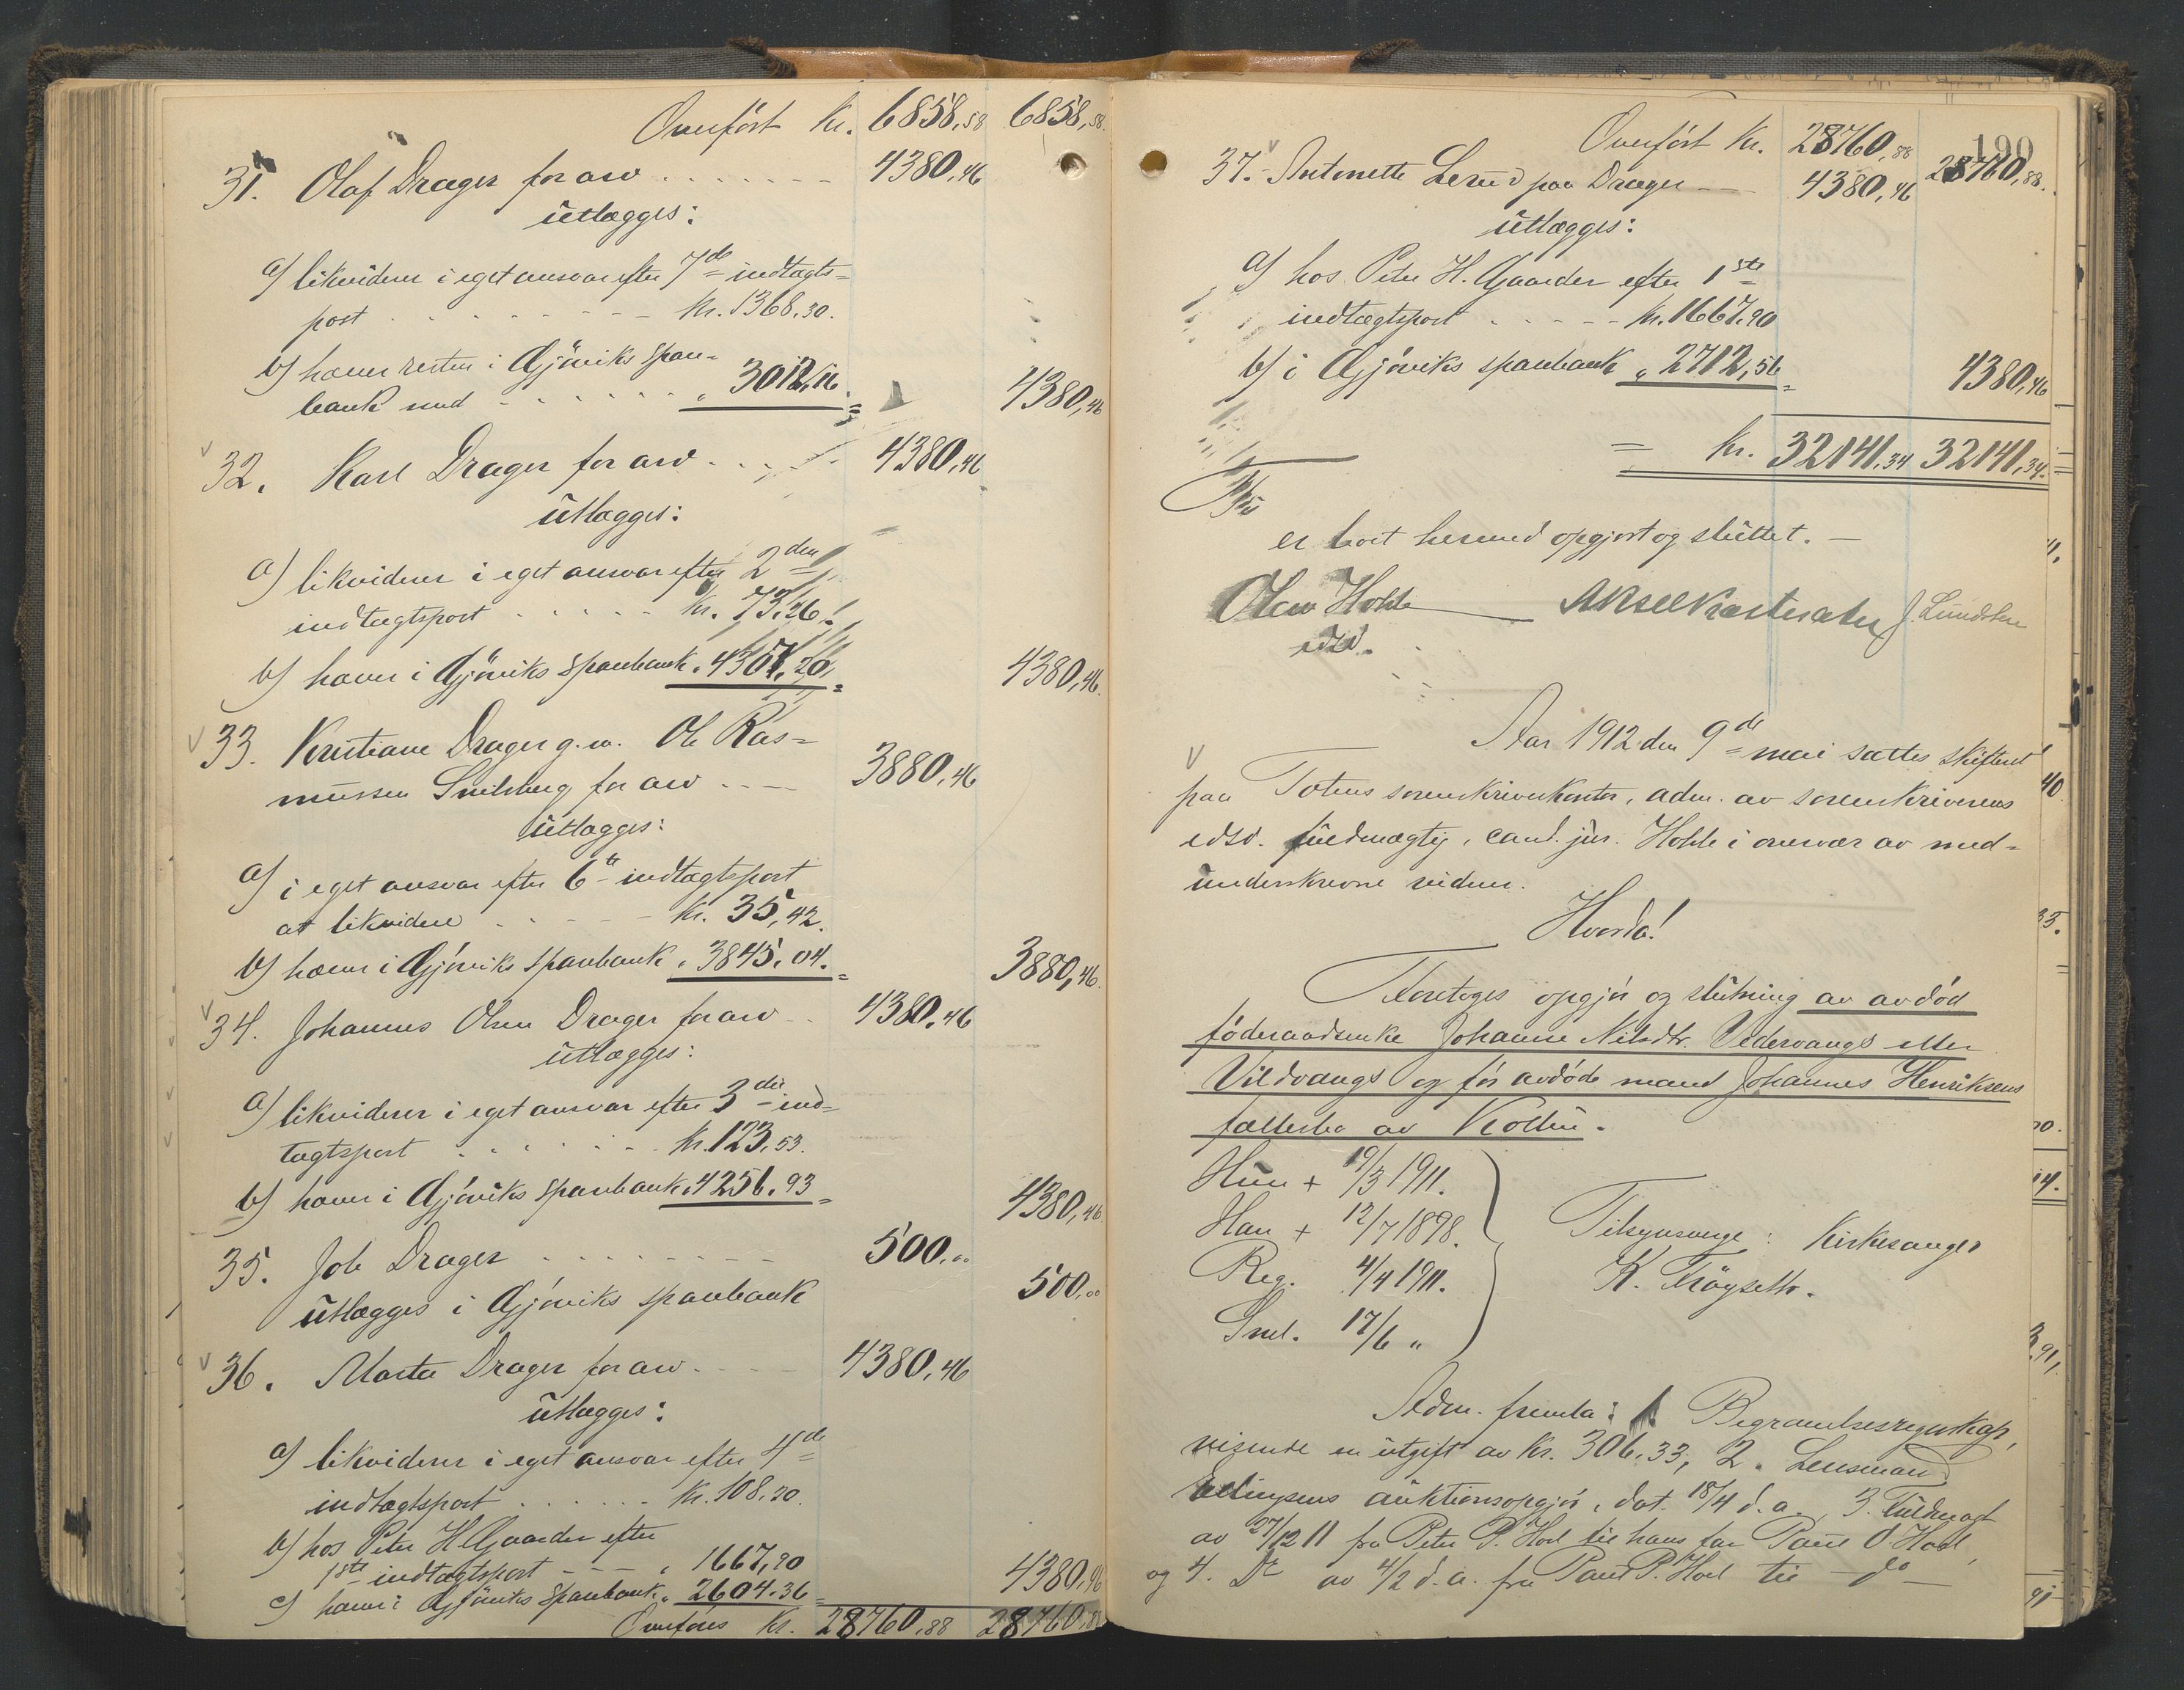 Overført Kr. 6858,58 6858,58.
31. Olaf Drager for arv ....... 4380,46
utlægges:
a) likviderer i eget ansvar efter 7de indtægts-
post ........ Kr. 1368.30.
b) hæver resten i Gjøviks spare-
bank med ...... " 3012,16. 4380,46
32. Karl Drager for arv .... 4380,46
utlægges:
a) likviderer i eget ansvar efter 2den
indtægtspost ..... Kr. 73.26
b) hæver i Gjøviks sparebank " 4307.20 4380,46.
33. Kristiane Drager g.m. Ole Ras-
mussen Snilsberg for arv .... 3880,46
utlægges:
a) i eget ansvar efter 6te indtægtspost
at likvidere ..... Kr. 35,42.
b) hæver i Gjøviks sparebank " 3845.04. 3880,46.
34. Johannes Olsen Drager for arv .. 4380.46
utlægges:
a) likviderer i eget ansvar efter 3die ind-
tægtspost ...... Kr. 123.53.
b) hæver i Gjøviks sparebank " 4256.93 4380,46
35. Job Drager ........ 500.00
utlægges i Gjøviks sparebank 500,00
36. Marte Drager for arv .... 4380,46
utlægges:
a) likviderer i eget ansvar efter 4de
indtægtspost ...... Kr. 108.20.
b) hos Peter H. Gaarder efter
1ste indtægtspost .... " 1667,90
c) hæver i Gjøviks sparebank " 2604.36 4380,46
Overføres Kr. 28760,88 28760,88
199
Overført Kr. 28760,88 28760,88.
37. Antonette Lerud paa Drager — 4380,46
utlægges:
a) hos Peter H. Gaarder efter 1ste
indtægtspost ..... Kr. 1667.90
b) i Gjøviks sparebank " 2712,56 4380,46
= Kr. 32141.34 32141,34.
er boet hermed opgjort og sluttet. —
Hohle Aksel J. Lundsten
edsv.
Aar 1912 den 9de mai sattes skifteret
paa Totens sorenskriverkontor, adm. av sorenskriverens
edsv. fuldmægtig, cand. jur. Hohle i overvær av med-
underskrevne vidner.
Hvorda!
Foretoges opgjør og slutning av avdød
føderaadsenke Johanne Nilsdtr. Vedervangs eller
Vildvangs og før avdøde mand Johannes Henriksens
fællesbo av Kolbu.
Hun + 19/3 1911.
Han + 12/7 1898. Tilsynsverge: Kirkesanger
Reg. 4/4 1911. K. Frøyseth.
Sml. 17/6 "
Adm. fremla: 1. Begravelsesregnskap,
visende en utgift av Kr. 306.33, 2. Lensmand
auktionsopgjør, dat. 18/4 d.a., 3. Fuldmagt
av 27/12 11 fra Peter P. Hoel til hans far Paul O. Hoel,
og 4. Do av 4/2 d.a. fra Paul P. Hoel til — do —